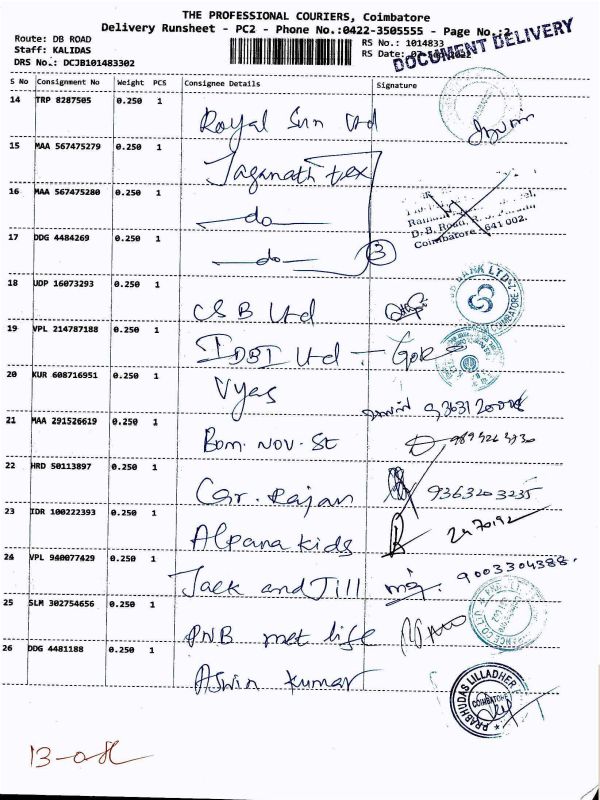 THE PROFESSIONAL COURIERS, Coimbatore
Delivery Runsheet - PC2 - Phone No.:0422-3505555 - Page No.:2
DOCUMENT DELIVERY
Route: DB ROAD
Staff: KALIDAS
DRS No.: DCJB101483302
RS No.: 1014833
RS Date:
S No Consignment No Weight PCS Consignee Details Signature
14 TRP 8287505 0.250 1 Royal Sun Ltd
15 MAA 567475279 0.250 1 Jaganath tex
16 MAA 567475280 0.250 1 —do—
D. B. Road, R. S.
Coimbatore - 641 002.
17 DDG 4484269 0.250 1 —do— 3
18 UDP 16073293 0.250 1 CSB Ltd
BANK LTD
COIMBATORE
19 VPL 214787188 0.250 1 IDBI Ltd -
20 KUR 608716951 0.250 1 Vyas
21 MAA 291526619 0.250 1 Bom. Nov. St
22 HRD 50113897 0.250 1 Car. Rajan 9363203235
23 IDR 100222393 0.250 1 Alpana kids
24 VPL 940077429 0.250 1 Jack and Jill 9003304388.
25 SLM 302754656 0.250 1 PNB met life
26 DDG 4481188 0.250 1 Aswin kumar
PRABHUDAS LILLADHER
COIMBATORE